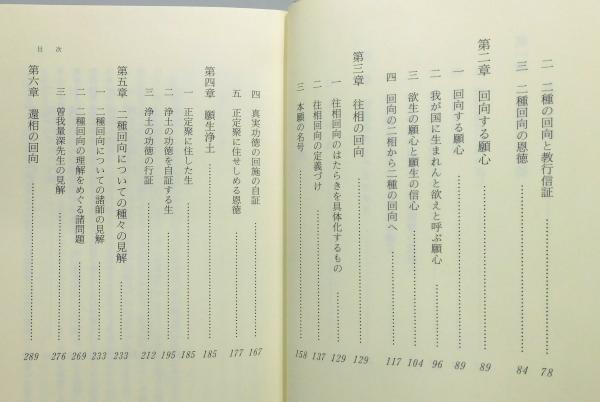 二　二種の回向と教行信証 78
三　二種回向の恩徳 84
第二章　回向する願心 89
一　回向する願心 89
二　我が国に生まれんと欲えと呼ぶ願心 96
三　欲生の願心と願生の信心 104
四　回向の二相から二種の回向へ 117
第三章　往相の回向 129
一　往相回向のはたらきを具体化するもの 129
二　往相回向の定義づけ 137
三　本願の名号 158
四　真実功徳の回施の自証 167
五　正定聚に住せしめる恩徳 177
第四章　願生浄土 185
一　正定聚に住した生 185
二　浄土の功徳を自証する生 195
三　浄土の功徳の行証 212
第五章　二種回向についての種々の見解 233
一　二種回向についての諸師の見解 233
二　二種回向の理解をめぐる諸問題 269
三　曽我量深先生の見解 276
第六章　還相の回向 289
目次